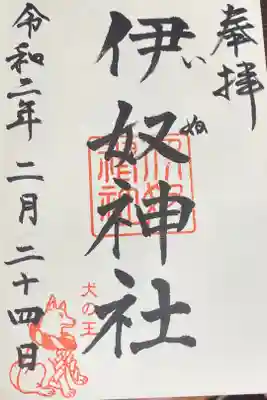 奉拝
伊奴神社
いぬ
犬の王
令和二年二月二十四日